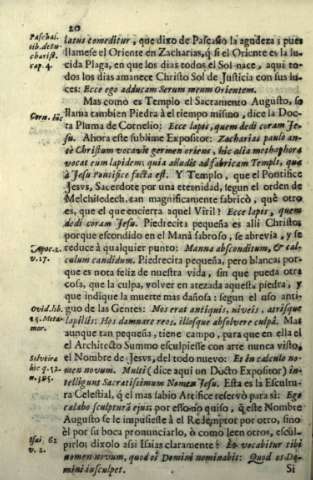 20
Paschai.
lib. de Eu-
charist.
cap. 4.
latus comeditur, que dixo de Pascasio la agudeza; pues
llamese el Oriente en Zacharias, q̃ si el Oriente es la lu-
cida Plaga, en que los dias todos el Sol nace, aqui to-
dos los dias amanece Christo Sol de Justicia con sus lu-
ces: Ecce ego adducam Serum meum Orientem.
Mas como es Templo el Sacramento Augusto, se
Corn. hic
llama tambien Piedra à el tiempo mismo, dice la Doc-
ta Pluma de Cornelio: Ecce lapis, quem dedi coram Je-
su. Ahora este sublime Expositor: Zacharias paulo an-
tè Christum vocavit germen oriens, hic alia methaphora
vocat eum lapidem, quia alludit ad fabricam Templi, que
à Jesu Pontifice facta est. Y Templo, que el Pontifice
Jesus, Sacerdote por una eternidad, segun el orden de
Melchisedech, tan magnificamente fabricò, què otro
es, que el que encierra aquel Viril? Ecce lapis, quem
dedi coram Jesu. Piedrecita pequeña es alli Christo,
porque escondido en el Manà sabroso, se abrevia, y se
Apoc. 2.
v. 17.
reduce à qualquier punto: Manna absconditum, & cal-
culum candidum. Piedrecita pequeña, pero blanca; por-
que es nota feliz de nuestra vida, sin que pueda otra
cosa, que la culpa, volver en atezada aquesta piedra, y
que indique la muerte mas dañosa: segun el uso anti-
Ovid. lib.
15. Meta-
mor.
guo de las Gentes: Mos erat antiquis, niveis, atrisque
lapillis: Hos damnare reos, illosque absolvere culpa. Mas
aunque tan pequeña, tiene campo, para que en ella el
el Architecto Summo esculpiesse con arte nunca visto,
el Nombre de Jesvs, del todo nuevo: Et in calculo no-
Silveira
hic q. 32.
n. 385.
men novum. Multi (dice aqui un Docto Expositor) in-
telligunt Sacratissimum Nomen Jesu. Esta es la Escultu-
ra Celestial, q̃ el mas sabio Artifice reservò para si: Ego
cælabo sculpturã ejus; por esso no quiso, q̃ este Nombre
Augusto se le impusiesse à el Redemptor por otro, sino
èl por su boca pronunciarlo, ò como leen otros, escul-
Isai. 62
v. 2.
pirlo; dixolo assi Isaias claramente: Et vocabitur tibi
nomen novum, quod os Domini nominabit: Quod os Do-
mini insculpet.
Si